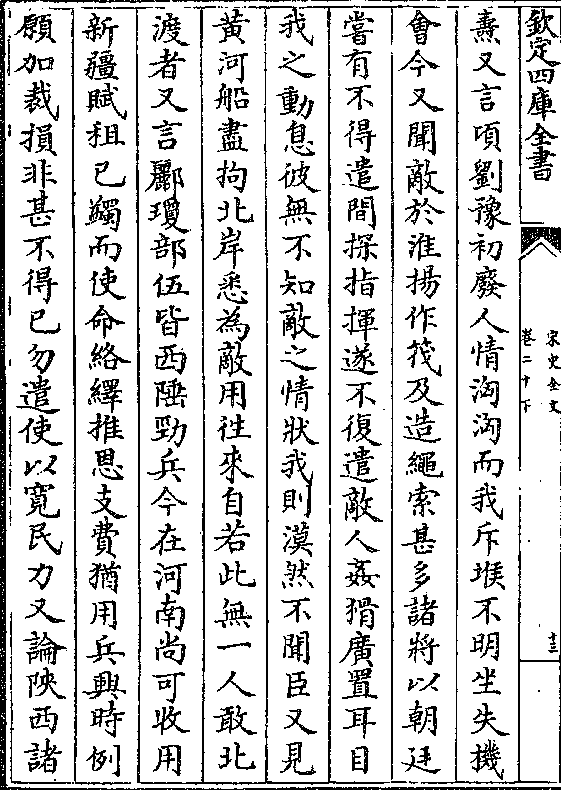 欽定四庫全書
宋史全文
卷二十下
十三
燾又言頃劉豫初廢人情洶洶而我斥堠不明坐失機
會今又聞敵於淮揚作筏及造繩索甚多諸將以朝廷
嘗有不得遣間探指揮遂不復遣敵人姦猾廣置耳目
我之動息彼無不知敵之情狀我則漠然不聞臣又見
黄河船盡拘北岸悉為敵用徃來自若此無一人敢北
渡者又言酈瓊部伍皆西陲勁兵今在河南尚可收用
新疆賦租已蠲而使命絡繹推恩支費猶用兵興時例
願加裁損非甚不得已勿遣使以寛民力又論陜西諸